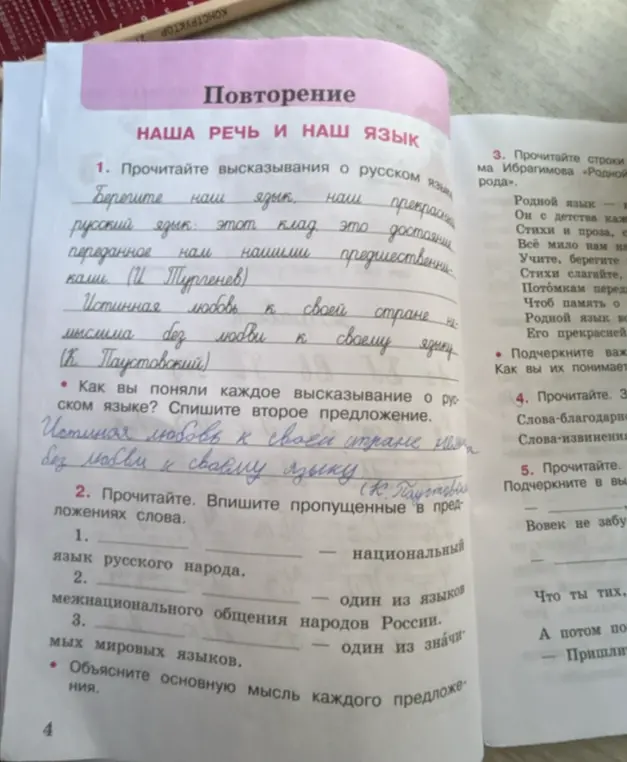 КОНСТРУКТОР
Повторение
НАША РЕЧЬ И НАШ ЯЗЫК
1. Прочитайте высказывания о русском языке.
Берегите наш язык, наш прекрасный
русский язык: этот клад, это достояние,
переданное нам нашими предшественни-
ками. (И. Тургенев)
Истинная любовь к своей стране не-
мыслима без любви к своему языку.
(К. Паустовский)
• Как вы поняли каждое высказывание о рус-
ском языке? Спишите второе предложение.
Истиная любовь к своей стране
без любви к своему языку
(К. Паустовский
2. Прочитайте. Впишите пропущенные в пред-
ложениях слова.
1. — национальный
язык русского народа.
2. — один из языков
межнационального общения народов России.
3. — один из значи-
мых мировых языков.
• Объясните основную мысль каждого предложе-
ния.
4
3. Прочитайте строки
ма Ибрагимова «Родной
рода».
Родной язык —
Он с детства
Стихи и проза,
Всё мило нам
Учите, берегите
Стихи слагайте,
Потомкам
Чтоб память о
Родной язык
Его прекрасней
• Подчеркните
Как вы их
4. Прочитайте.
Слова-
Слова-извинения
5. Прочитайте.
Подчеркните в
—
Вовек не
—
Что ты тих,
А потом
—